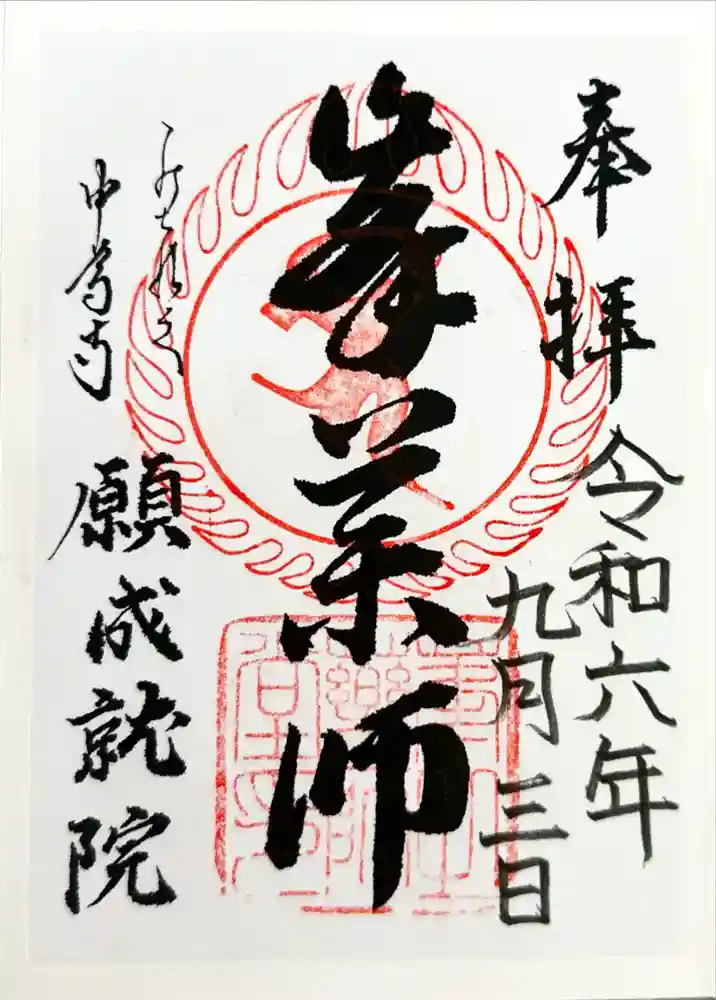 奉拝
令和六年
九月三日
峯薬師
中尊寺
願成就院